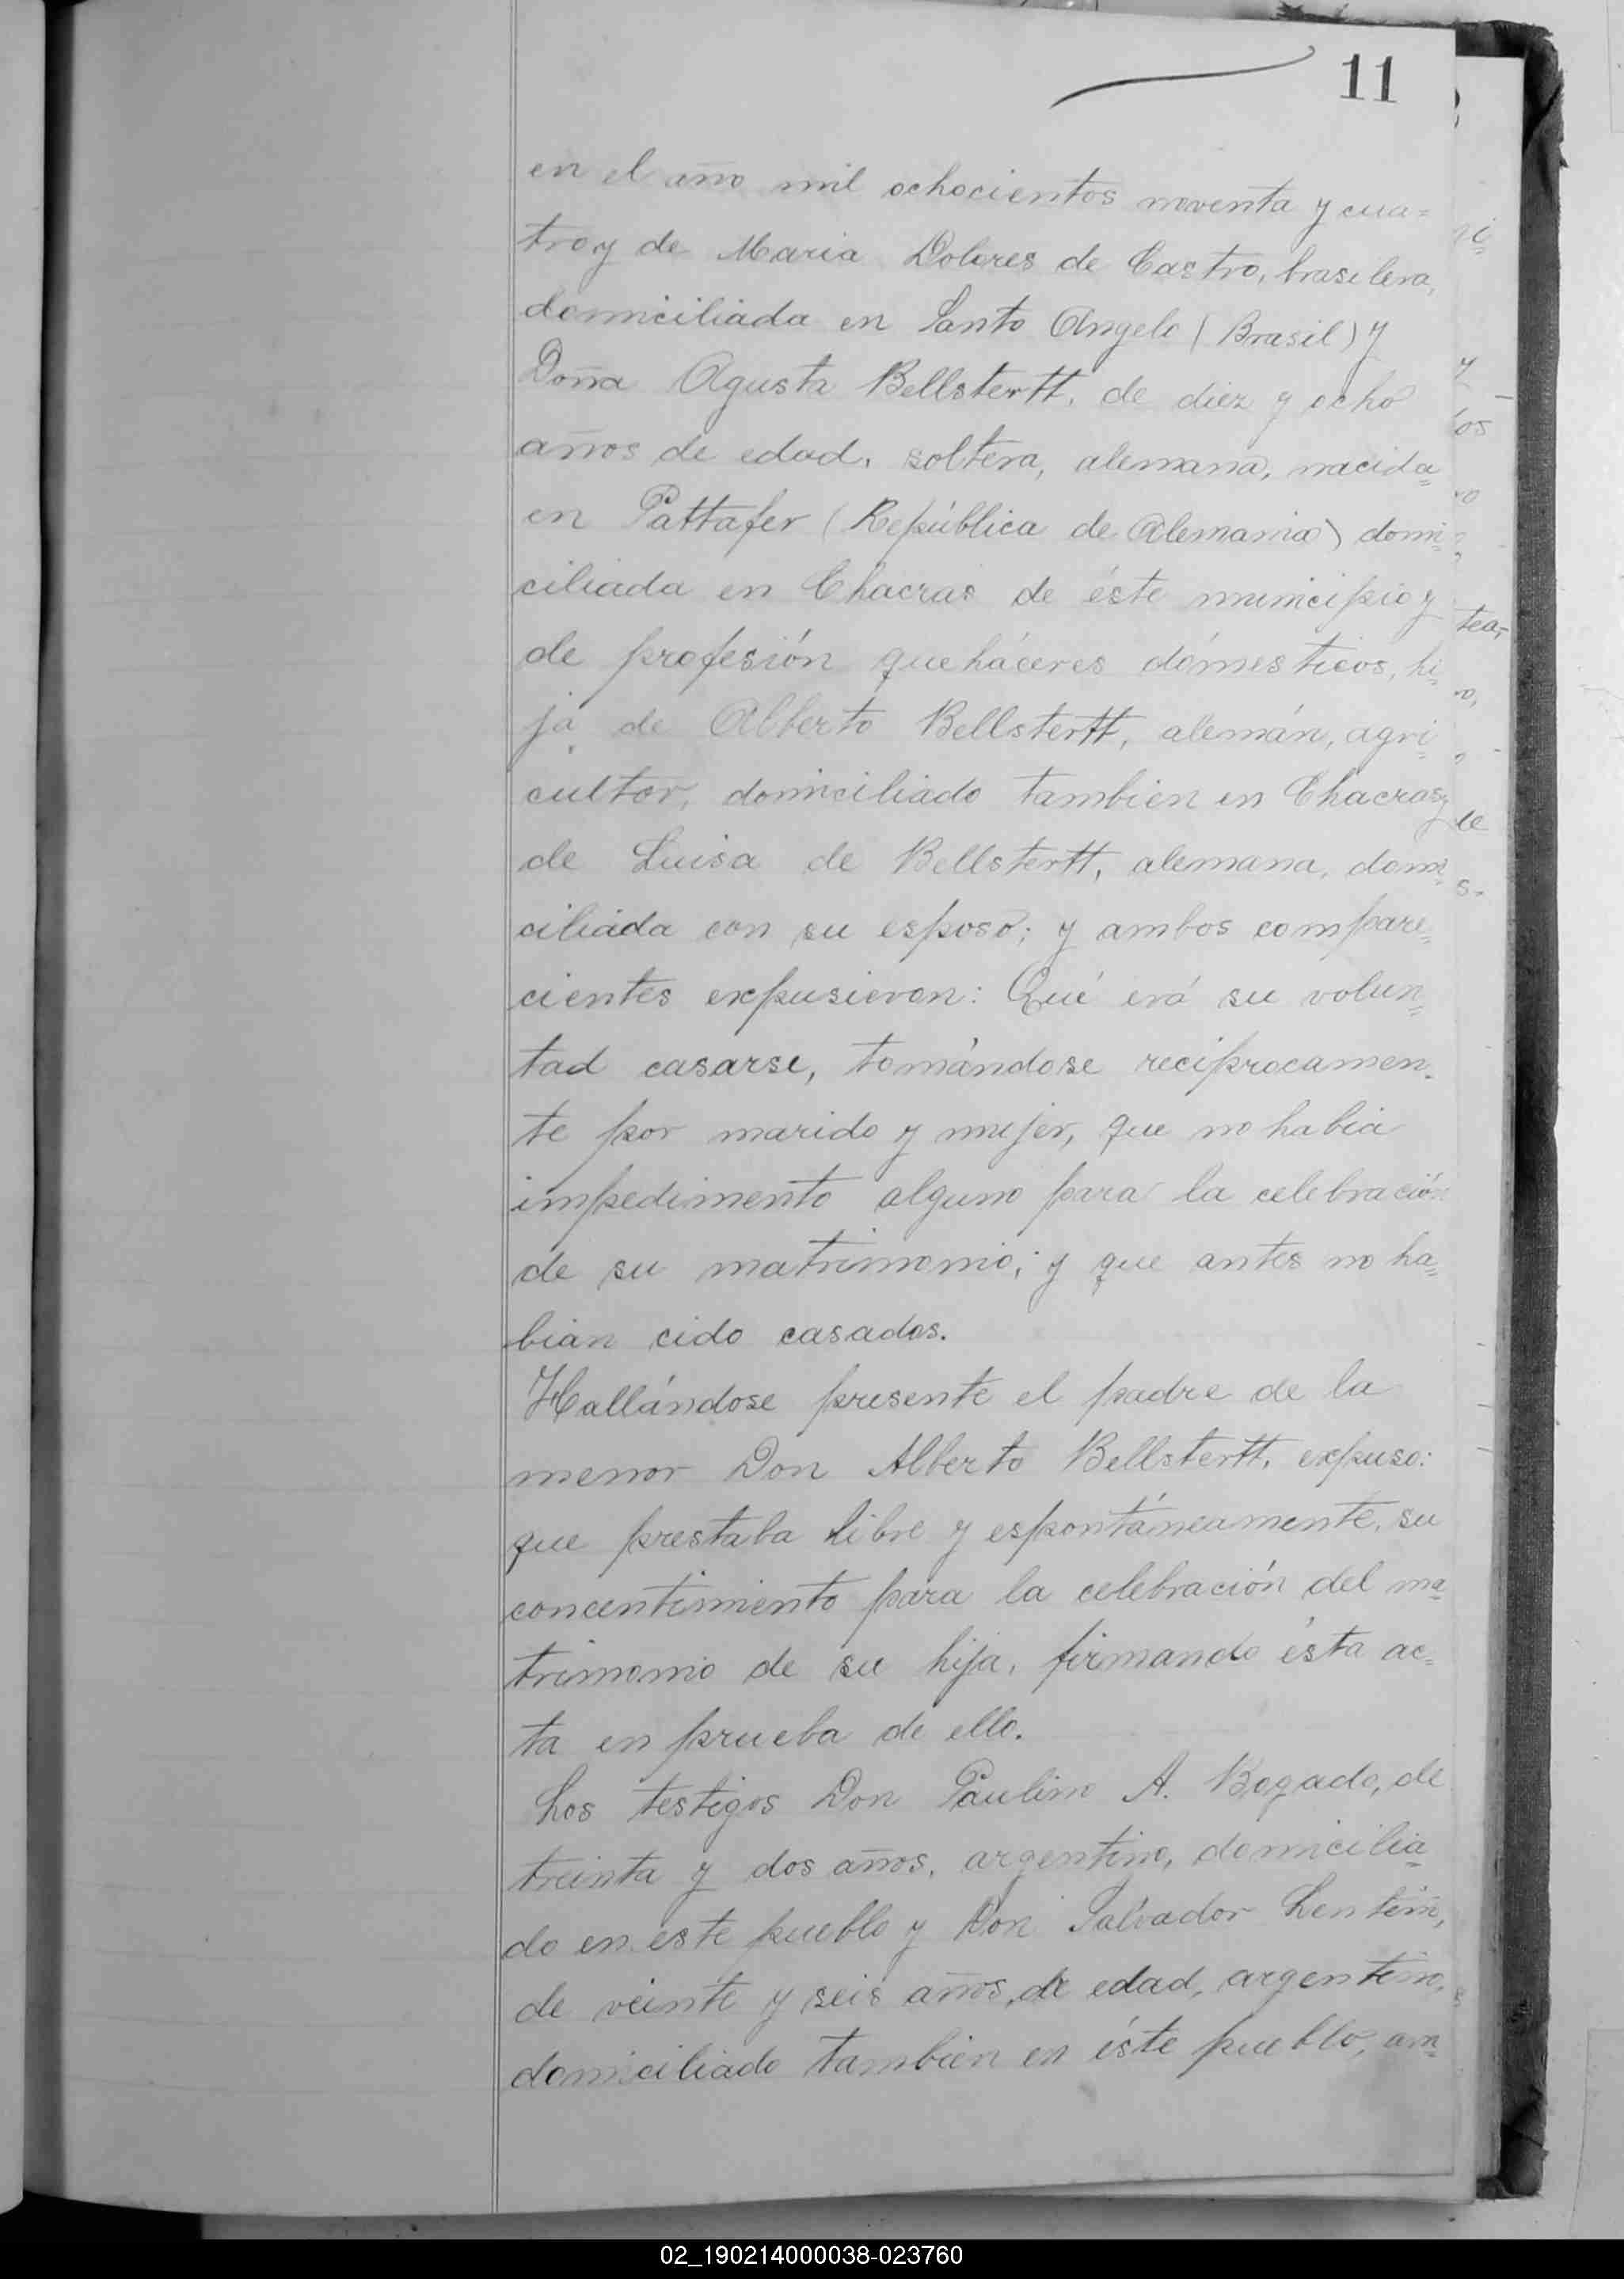 11
en el año mil ochocientos noventa y cua=
tro y de Maria Dolores de Castro, brasilera,
domiciliada en Santo Angelo (Brasil) y
Doña Agusta Bellstertt, de diez y ocho
años de edad, soltera, alemana, nacida
en Pattafer (República de Alemania) domi=
ciliada en Chacras de éste municipio y
de profesión queháceres dómesticos, hi=
ja de Alberto Bellstertt, alemán, agri=
cultor, domiciliado tambien en Chacras y
de Luisa de Bellstertt, alemana, domi=
ciliada con su esposo; y ambos compare=
cientes expusieron: Qué erá su volun=
tad casarse, tomándose reciprocamen=
te por marido y mujer, que no habia
impedimento alguno para la celebración
de su matrimonio; y que antes no ha=
bian cido casados.
Hallándose presente el padre de la
menor Don Alberto Bellstertt, expuso:
que prestaba libre y espontáneamente, su
concentimiento para la celebración del ma=
trimonio de su hija, firmando ésta ac=
ta en prueba de ello.
Los testigos Don Paulino A. Bogado, de
treinta y dos años, argentino, domicilia=
do en este pueblo y Don Salvador Lentini,
de veinte y seis años, de edad, argentino,
domiciliado tambien en éste pueblo, am=
02_190214000038-023760